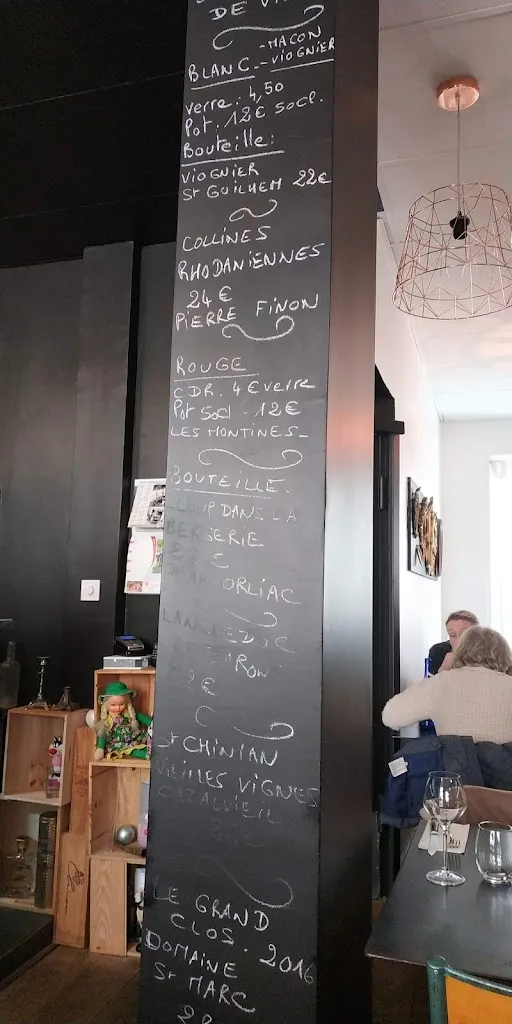 DE VIN
- MACON
BLANC - VIOGNIER
verre : 4,50
Pot : 12€ 50cl.
Bouteille :
VIOGNIER
St GUILHEM 22€
COLLINES
RHODANIENNES
24 €
PIERRE FINON
ROUGE
CDR. 4€ verre
Pot 50cl - 12€
LES MONTINES -
BOUTEILLE.
DANS LA
BERGERIE
€
ORLIAC
LANGUEDOC
2€
St CHINIAN
VIEILLES VIGNES
CAZALVIEIL
LE GRAND
CLOS. 2016
DOMAINE
St MARC